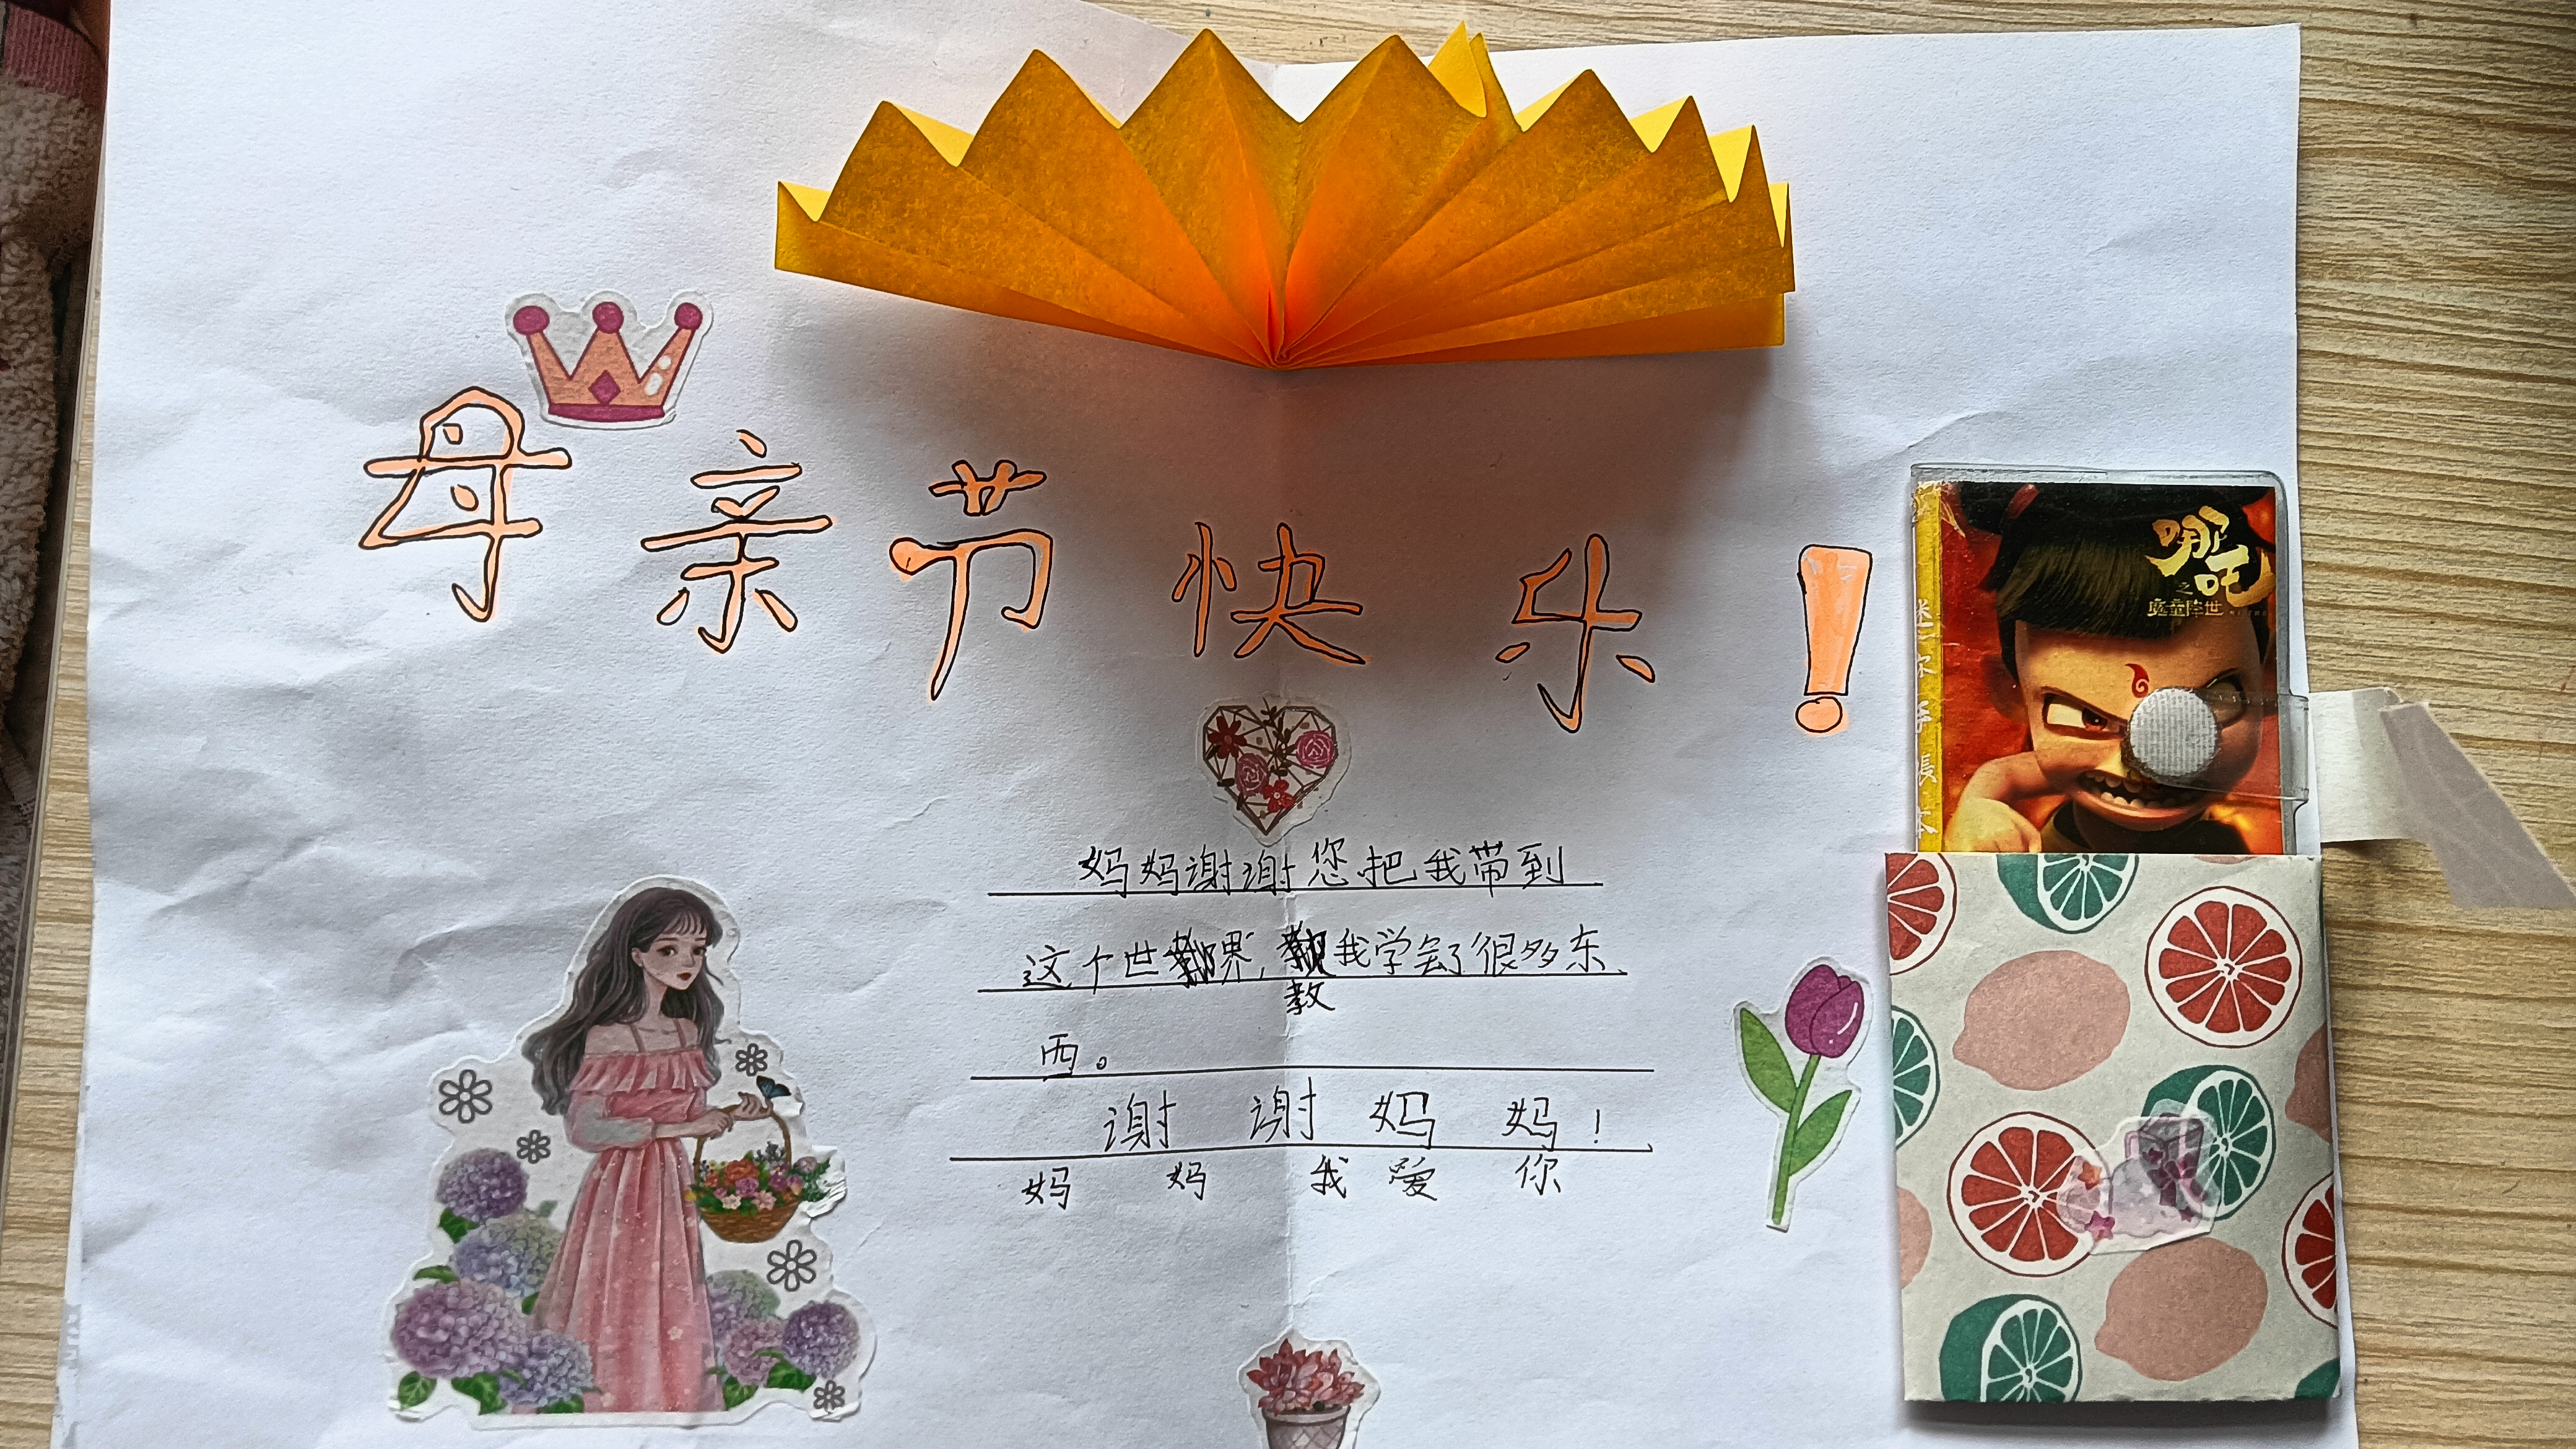 母亲节快乐！
哪吒
之
魔童降世
迷你手帳本
妈妈谢谢您把我带到
这个世界，教我学会了很多东
西。
谢谢妈妈！
妈妈我爱你